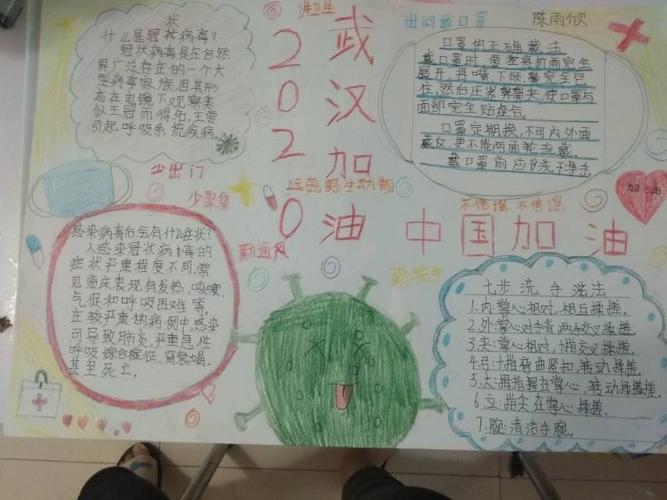 状
什么是冠状病毒？
冠状病毒是在自然
界广泛存在的一个大
型病毒家族,因其形
态在电镜下观察类
似王冠而得名,主要
引起呼吸系统疾病.
讲卫生
2020
武汉加油
中国加油
出门戴口罩
陈雨欣
口罩的正确戴法
戴口罩时,要
展开,将嘴、下
住,然后压紧鼻夹,使口罩与
面部完全贴
口罩定期换,不可内外面
戴反,更不能两面轮流戴。
戴口罩前应
加油
少出门
少聚集
远离野生动物
不信谣、不传谣
勤通风
勤洗手
感染病毒后会有什么症状？
人感染冠状病毒的
症状严重程度不同,常
见临床表现有发热、咳嗽、
气促和呼吸困难等。
在较严重的病例中,感染
可导致肺炎、严重急性
呼吸综合症征、肾衰竭、
甚至死亡。
七步洗手法
1.内:掌心相对,相互揉搓。
2.外:掌心对手背,两手交叉揉搓。
3.夹:掌心相对,十指交叉揉搓。
4.弓:十指弯曲紧扣,转动揉搓。
5.大:拇指握在掌心,转动揉搓。
6.立:指尖在掌心揉搓。
7.腕:清洁手腕。